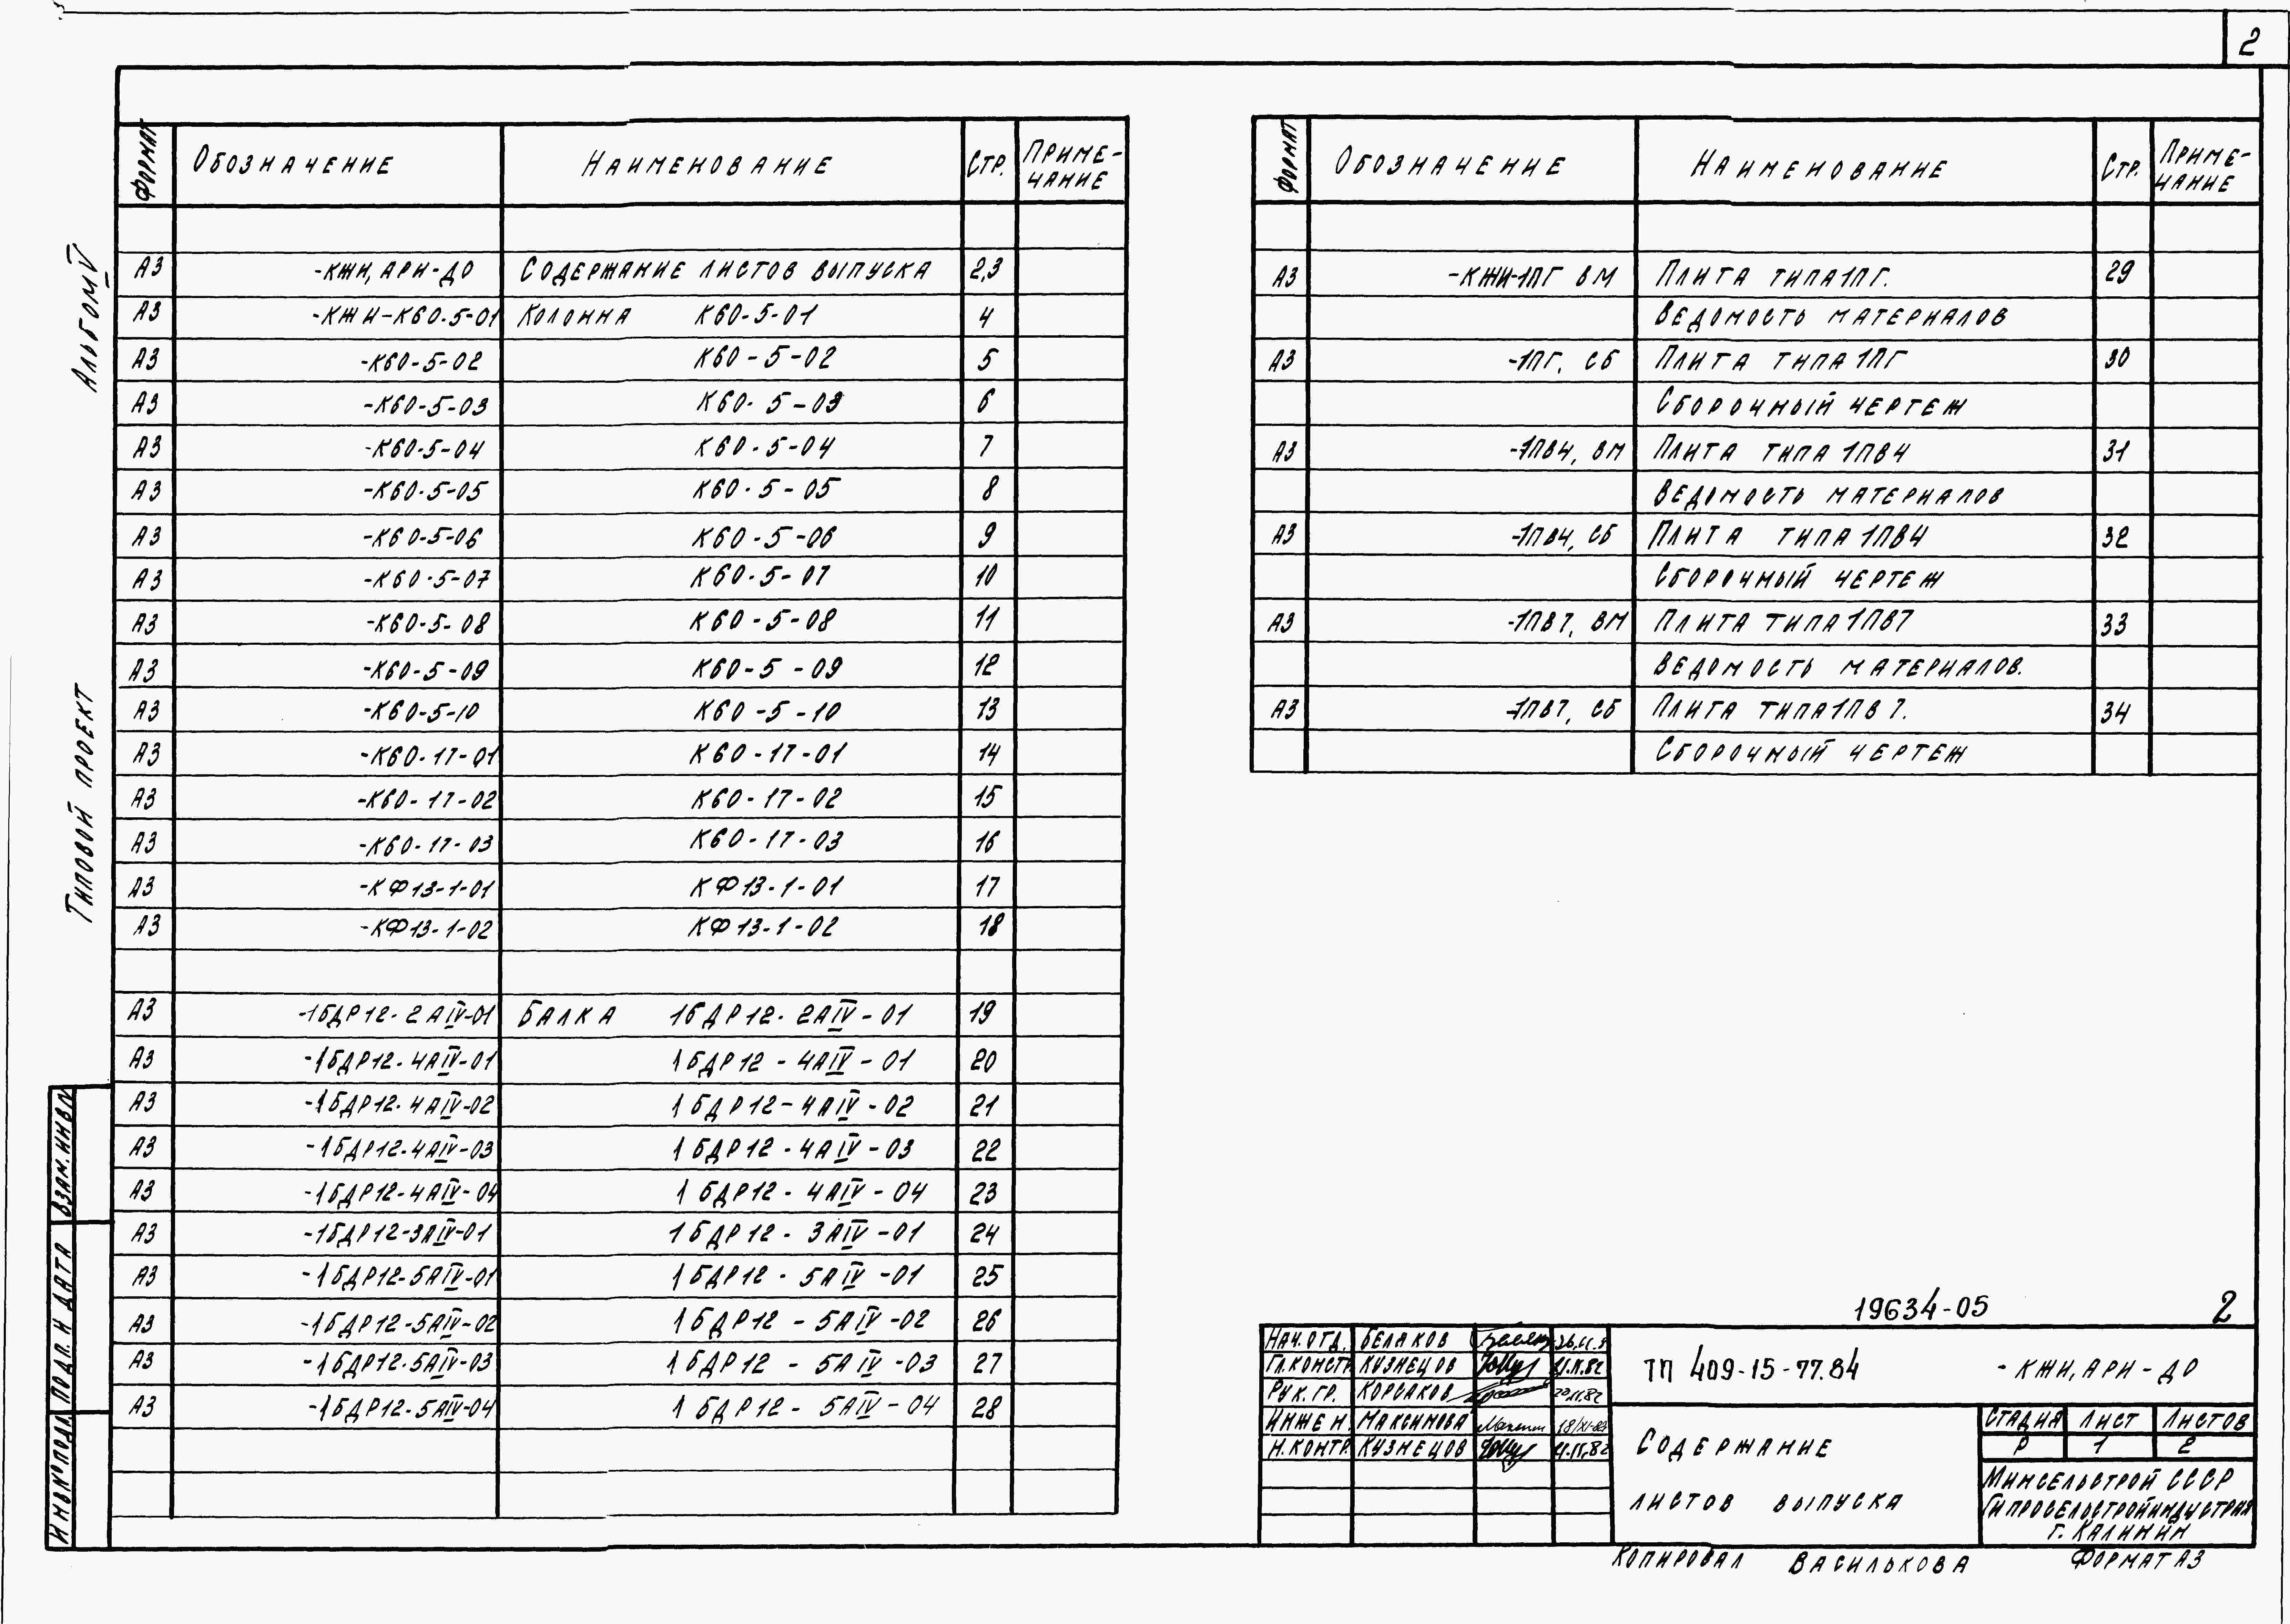 2
Альбом IV
Типовой проект
Формат Обозначение Наименование Стр. Приме-чание
А3 -КЖИ, АРИ-ДО Содержание листов выпуска 2,3
А3 -КЖИ-К60-5-01 Колонна К60-5-01 4
А3 -К60-5-02 К60-5-02 5
А3 -К60-5-03 К60-5-03 6
А3 -К60-5-04 К60-5-04 7
А3 -К60-5-05 К60-5-05 8
А3 -К60-5-06 К60-5-06 9
А3 -К60-5-07 К60-5-07 10
А3 -К60-5-08 К60-5-08 11
А3 -К60-5-09 К60-5-09 12
А3 -К60-5-10 К60-5-10 13
А3 -К60-17-01 К60-17-01 14
А3 -К60-17-02 К60-17-02 15
А3 -К60-17-03 К60-17-03 16
А3 -КФ13-1-01 КФ13-1-01 17
А3 -КФ13-1-02 КФ13-1-02 18
А3 -1БДР12-2АIV-01 Балка 1БДР12-2АIV-01 19
А3 -1БДР12-4АIV-01 1БДР12-4АIV-01 20
А3 -1БДР12-4АIV-02 1БДР12-4АIV-02 21
А3 -1БДР12-4АIV-03 1БДР12-4АIV-03 22
А3 -1БДР12-4АIV-04 1БДР12-4АIV-04 23
А3 -1БДР12-3АIV-01 1БДР12-3АIV-01 24
А3 -1БДР12-5АIV-01 1БДР12-5АIV-01 25
А3 -1БДР12-5АIV-02 1БДР12-5АIV-02 26
А3 -1БДР12-5АIV-03 1БДР12-5АIV-03 27
А3 -1БДР12-5АIV-04 1БДР12-5АIV-04 28
Взам.инв.№
Подп. и дата
Инв.№подл.
Формат Обозначение Наименование Стр. Приме-чание
А3 -КЖИ-1ПГ ВМ Плита типа 1ПГ. 29
Ведомость материалов
А3 -1ПГ, СБ Плита типа 1ПГ 30
Сборочный чертеж
А3 -1ПВ4, ВМ Плита типа 1ПВ4 31
Ведомость материалов
А3 -1ПВ4, СБ Плита типа 1ПВ4 32
Сборочный чертеж
А3 -1ПВ7, ВМ Плита типа 1ПВ7 33
Ведомость материалов.
А3 -1ПВ7, СБ Плита типа 1ПВ7. 34
Сборочный чертеж
19634-05 2
Нач.отд. Беляков
Гл.констр. Кузнецов 21.11.82
Рук.гр. Корсаков 20.11.82
Инжен. Максимова 18/XI-82
Н.контр. Кузнецов 21.11.82
ТП 409-15-77.84 -КЖИ, АРИ-ДО
Содержание
листов выпуска
Стадия Лист Листов
Р 1 2
Минсельстрой СССР
Гипросельстройиндустрия
г. Калинин
Копировал Василькова Формат А3